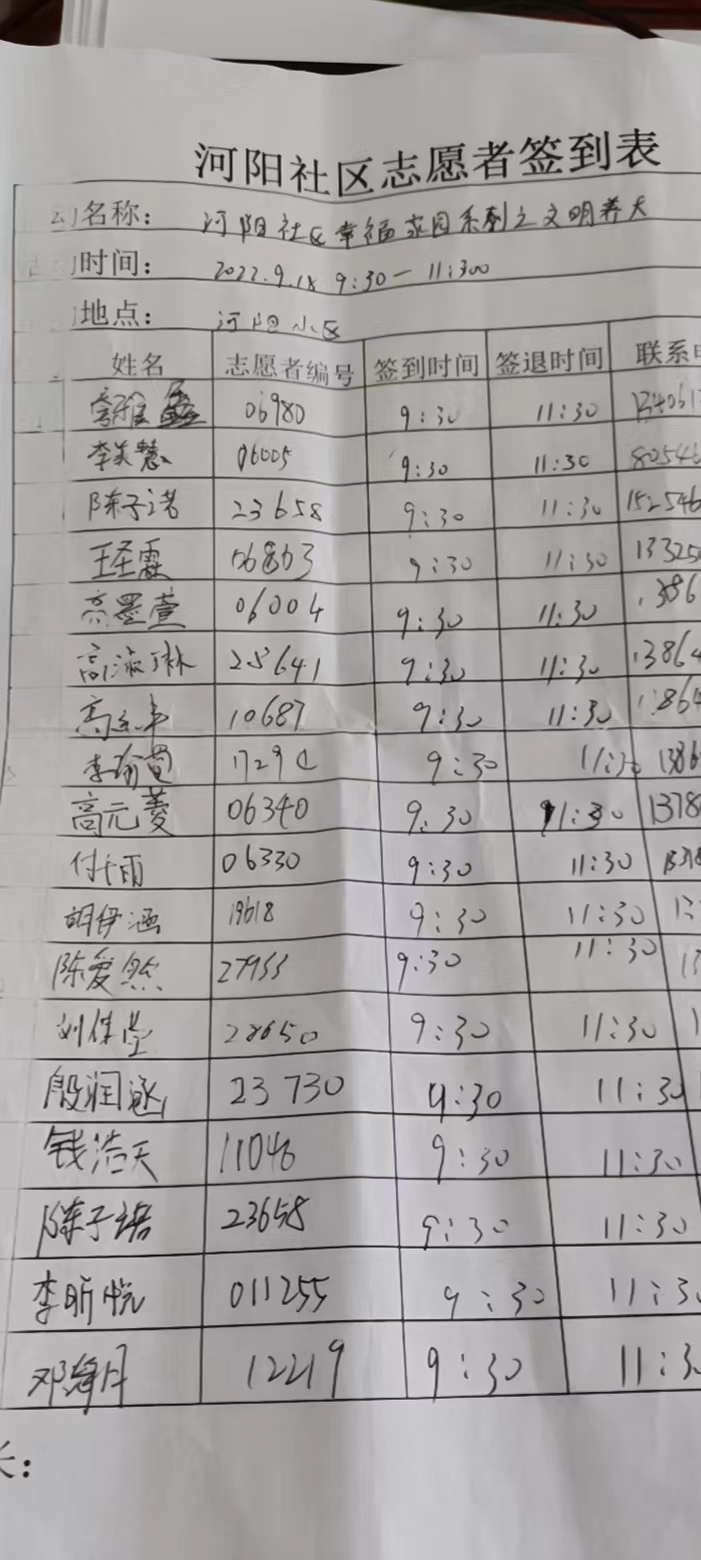 河阳社区志愿者签到表
动名称: 河阳社区幸福家园系列之文明养犬
时间: 2022.9.18 9:30—11:300
地点: 河阳小区
姓名 志愿者编号 签到时间 签退时间 联系
06980 9:30 11:30 134061
李美慧 06005 9:30 11:30 80546
陈子诺 23658 9:30 11:30 152546
王圣霖 06863 9:30 11:30 13325
高墨萱 06004 9:30 11:30 1386
高淑琳 28641 9:30 11:30 13864
高 10687 9:30 11:30 1864
李瑜萱 9:30 11:30 1386
高元菱 06340 9:30 11:30 1378
付千雨 06330 9:30 11:30
胡伊涵 19618 9:30 11:30 13
陈爱然 27953 9:30 11:30 13
刘佳莹 28650 9:30 11:30 1
殷润涵 23730 9:30 11:30
钱浩天 11046 9:30 11:30
陈子诺 23658 9:30 11:30
李昕悦 011255 9:30 11:3
邓海月 12219 9:30 11:3
长: